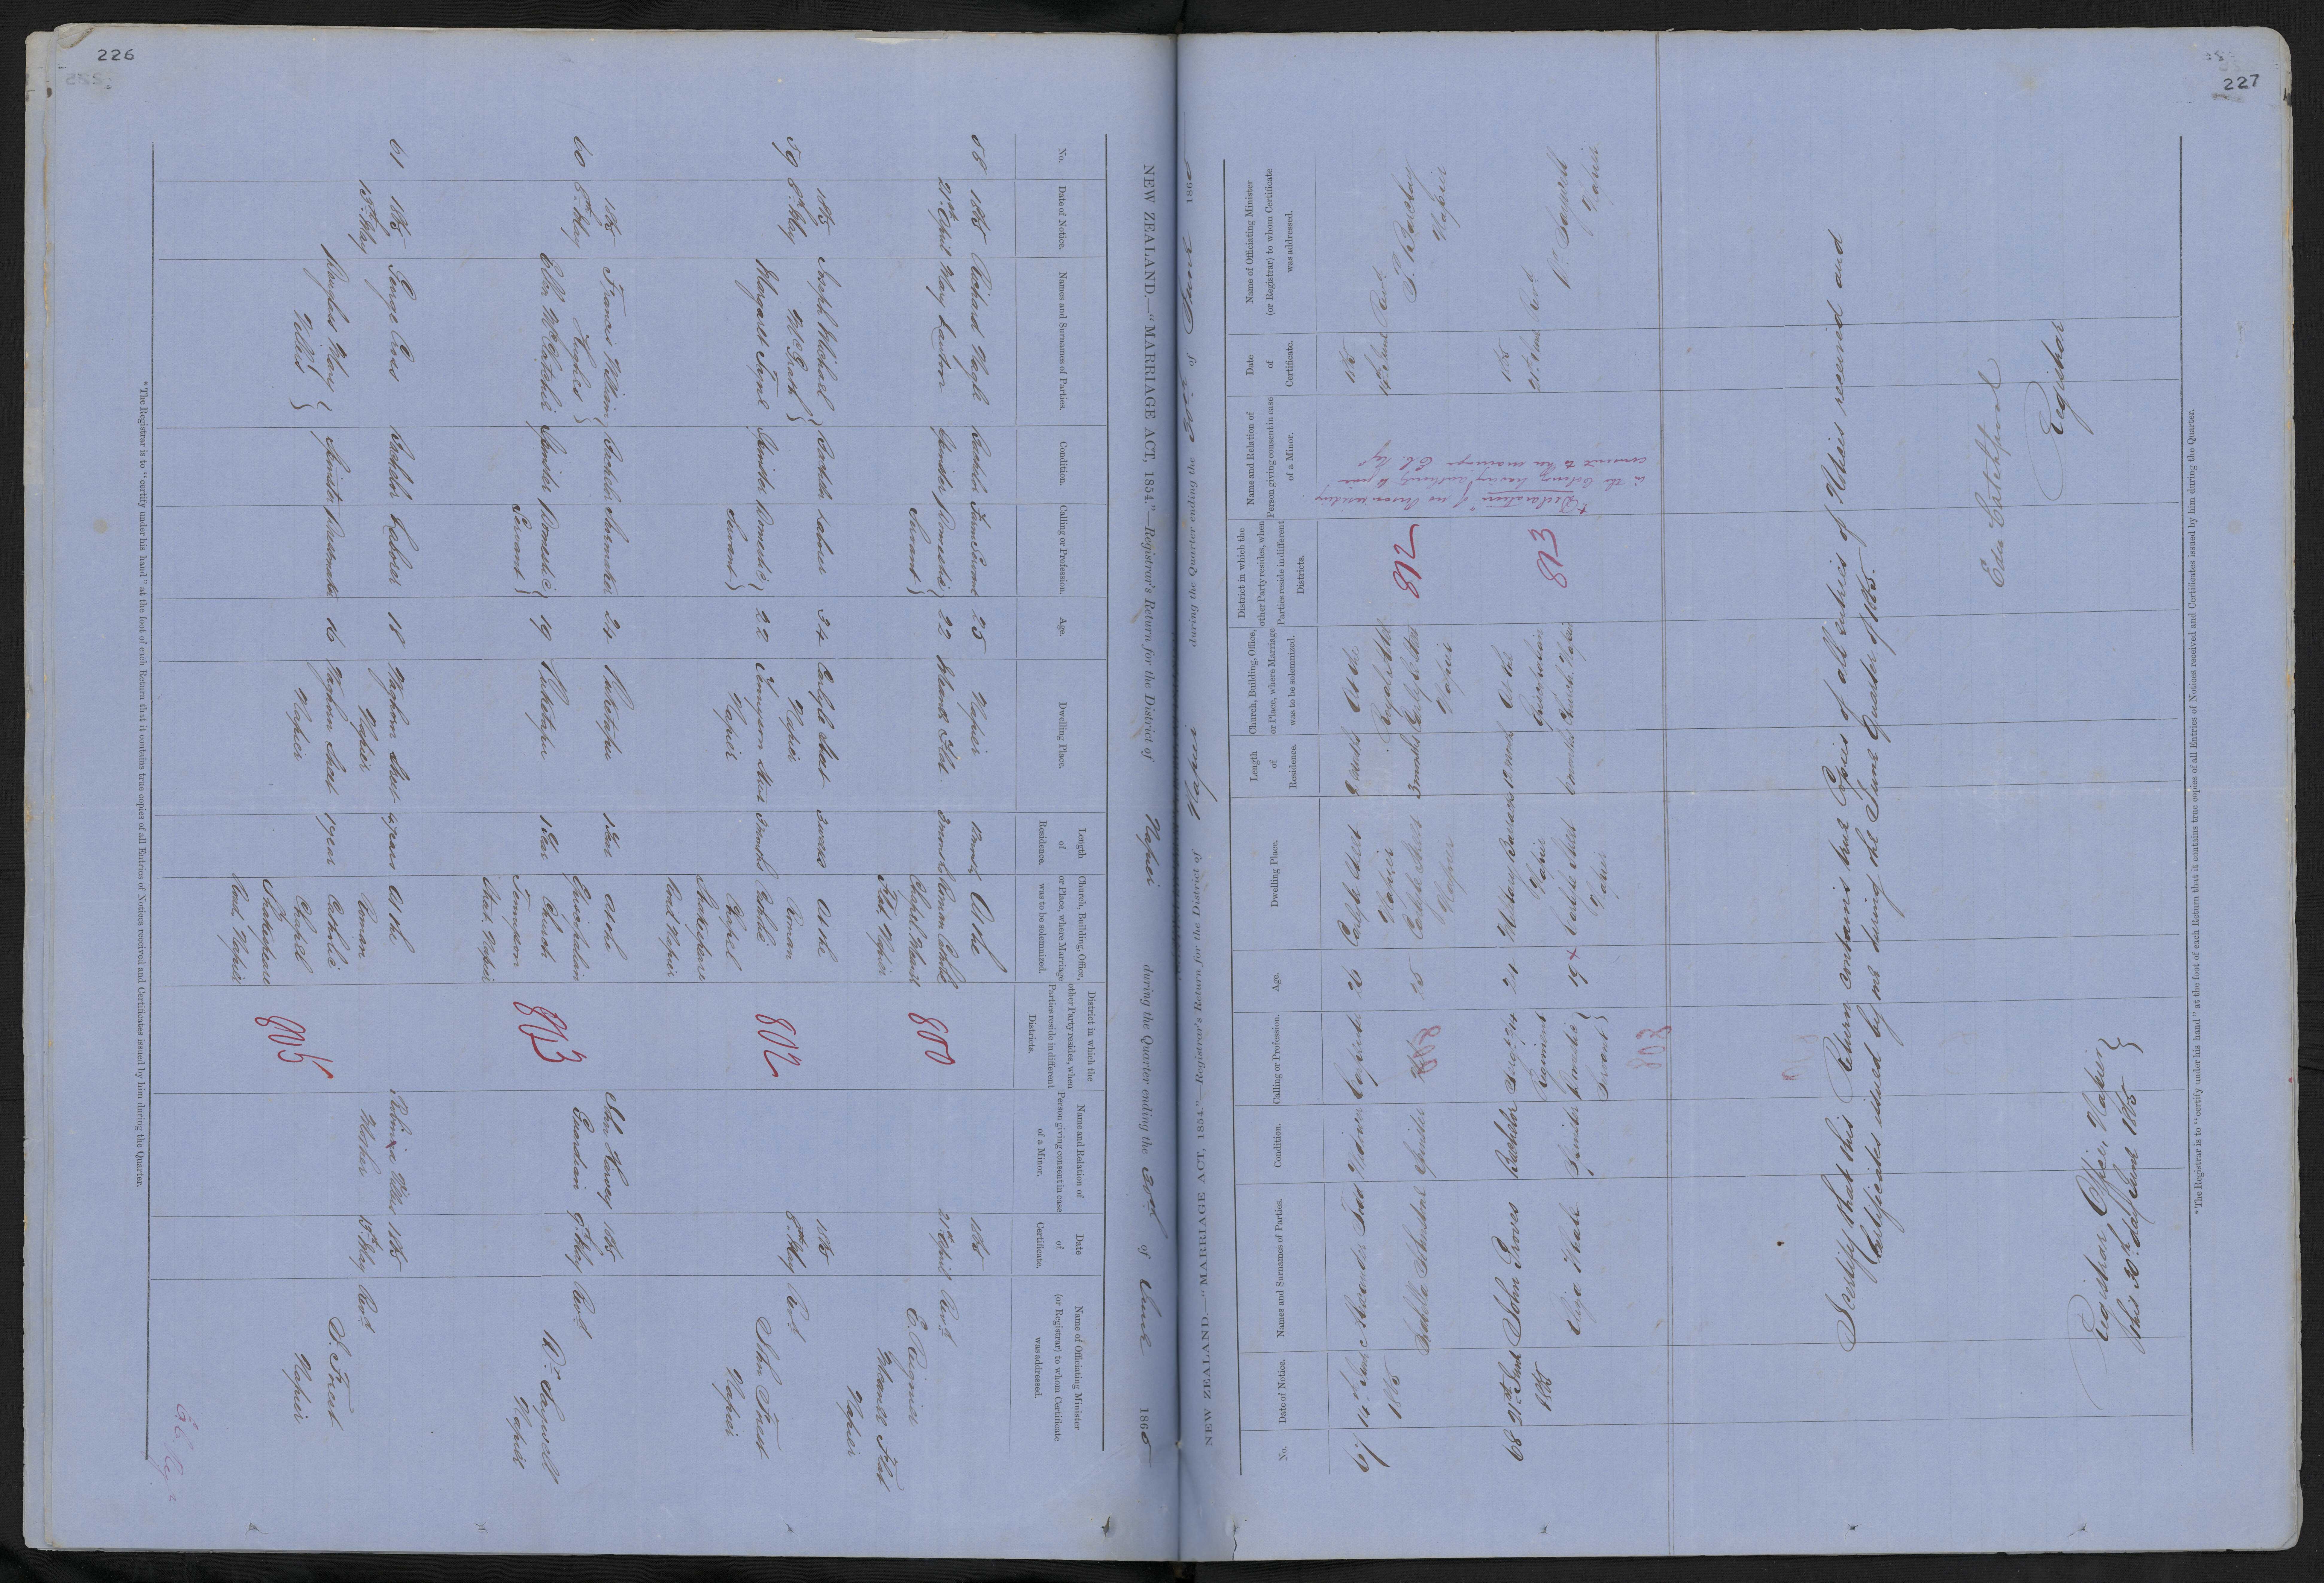 226
NEW ZEALAND.—"MARRIAGE ACT, 1854."—Registrar's Return for the District of Napier during the Quarter ending the 30th of June 1865
No. Date of Notice. Names and Surnames of Parties. Condition. Calling or Profession. Age. Dwelling Place. Length of Residence. Church, Building, Office, or Place, where Marriage was to be solemnized. District in which the other Party resides, when Parties reside in different Districts. Name and Relation of Person giving consent in case of a Minor. Date of Certificate. Name of Officiating Minister (or Registrar) to whom Certificate was addressed.
58 1865 Richard Nagle Bachelor 25 Napier At the 1865
21st April Mary Spinster Domestic 22 3 months Roman Catholic 800 21st April Revd
Servant Chapel E. Reignier
Flat, Napier Flat
Napier
1865 Joseph Michael Bachelor Labourer 34 Carlyle Street 3 weeks At the 1865
59 8th May McGrath Napier Roman 802 8th May Revd
Margaret Spinster Domestic 22 Tennyson Street 3 months Catholic John
Servant Napier Chapel Napier
Shakespeare
Road Napier
1865 Francis William Bachelor Shoemaker 24 Puketapu 1 Year At the John Harvey 1865
60 8th May Hughes Presbyterian Guardian 9th May Revd
Ellen Spinster Domestic 19 Puketapu 1 Year Church 803 Wm. Saywell
Servant Tennyson Napier
Street, Napier
61 1865 George Bachelor Labourer 18 Vaughan Street 4 years At the Willis 1865
13th May Napier Roman Mother 13th May Revd
Mary Spinster 16 Vaughan Street 1 year Catholic
Willis Napier Chapel 805 Napier
Shakespeare
Road, Napier
* The Registrar is to "certify under his hand" at the foot of each Return that it contains true copies of all Entries of Notices received and Certificates issued by him during the Quarter.
227
NEW ZEALAND.—"MARRIAGE ACT, 1854."—Registrar's Return for the District of Napier during the Quarter ending the 30th of June 1865
No. Date of Notice. Names and Surnames of Parties. Condition. Calling or Profession. Age. Dwelling Place. Length of Residence. Church, Building, Office, or Place, where Marriage was to be solemnized. District in which the other Party resides, when Parties reside in different Districts. Name and Relation of Person giving consent in case of a Minor. Date of Certificate. Name of Officiating Minister (or Registrar) to whom Certificate was addressed.
67 14th June Alexander Widower Carpenter 26 Carlyle Street At the 1865
1865 Napier 14th June Revd
Isabella Spinster 25 Carlyle Street 3 months Carlyle Street 812 P. Barclay
Napier Napier Napier
68 21st June John Groves Bachelor 24 Military Barracks 12 months At the 1865
1865 Regiment Napier Presbyterian 813 21st June Revd
Eliza Spinster Domestic 19 x Carlyle Street 6 months Church, Napier Wm. Saywell
Servant Napier Napier
x Declaration "of no Person residing
in the Colony having authority to give
consent to the marriage
I certify that this Return contains true Copies of all entries of Notices received and
Certificates issued by me during the June Quarter of 1865.
Registrar
Registrars Office, Napier
this 30th day of June 1865
* The Registrar is to "certify under his hand" at the foot of each Return that it contains true copies of all Entries of Notices received and Certificates issued by him during the Quarter.